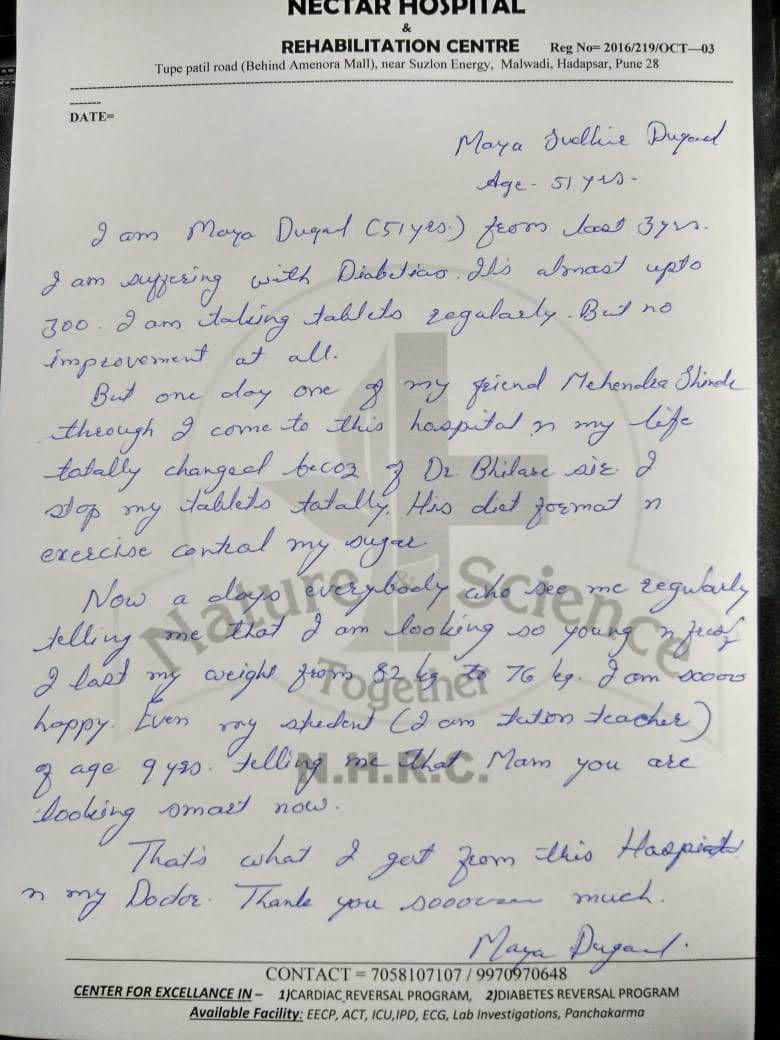 NECTAR HOSPITAL
&
REHABILITATION CENTRE Reg No= 2016/219/OCT—03
Tupe patil road (Behind Amenora Mall), near Suzlon Energy, Malwadi, Hadapsar, Pune 28
DATE=
Maya Sudhir Dugad
Age - 51 yrs.
I am Maya Dugad (51 yrs.) from last 3 yrs.
I am suffering with Diabeties. Its almost upto
300. I am taking tablets regularly. But no
improvement at all.
But one day one of my friend Mehendra Shinde
through I come to this hospital n my life
totally changed becoz of Dr. Bhilare sir I
stop my tablets totally. His diet format n
exercise control my sugar
Now a days everybody who see me regularly
telling me that I am looking so young n
I lost my weight from 82 kg to 76 kg. I am soooo
happy. Even my student (I am tution teacher)
of age 9 yrs. telling me that Mam you are
looking smart now.
That's what I get from this Hospital
n my Doctor. Thank you much.
Maya Dugad.
Nature & Science
Together
N.H.R.C.
CONTACT = 7058107107 / 9970970648
CENTER FOR EXCELLENCE IN – 1)CARDIAC REVERSAL PROGRAM, 2)DIABETES REVERSAL PROGRAM
Available Facility: EECP, ACT, ICU,IPD, ECG, Lab Investigations, Panchakarma